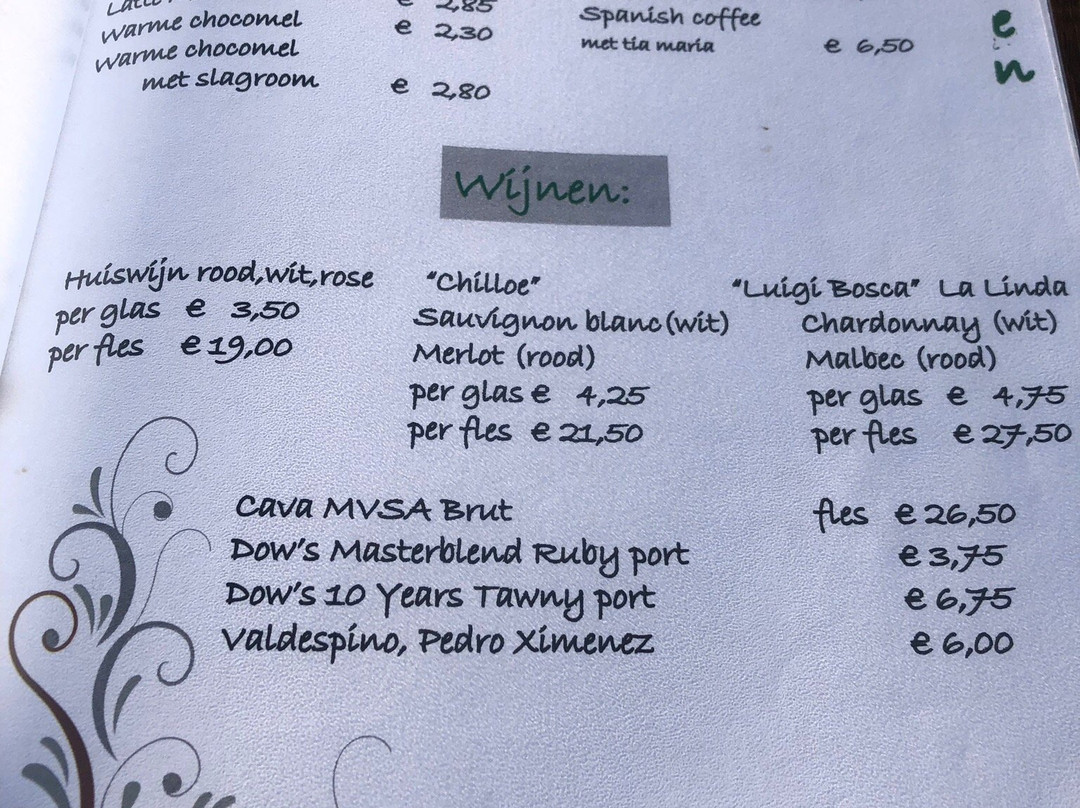 Warme chocomel € 2,30
Warme chocomel
met slagroom € 2,80
Spanish coffee
met tia maria € 6,50
e
n
Wijnen:
Huiswijn rood,wit,rose
per glas € 3,50
per fles € 19,00
"Chilloe"
Sauvignon blanc (wit)
Merlot (rood)
per glas € 4,25
per fles € 21,50
"Luigi Bosca" La Linda
Chardonnay (wit)
Malbec (rood)
per glas € 4,75
per fles € 27,50
Cava MVSA Brut fles € 26,50
Dow's Masterblend Ruby port € 3,75
Dow's 10 Years Tawny port € 6,75
Valdespino, Pedro Ximenez € 6,00